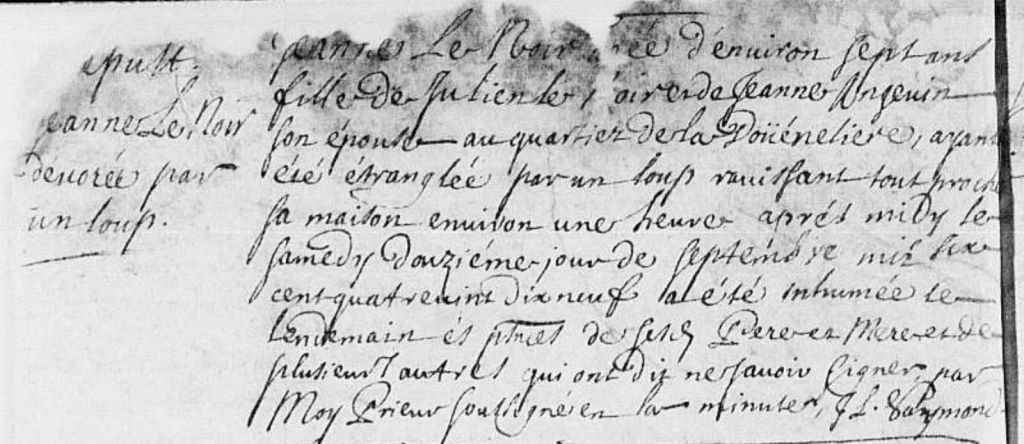 spult.
Jeanne Le Noir
dévorée par
un loup.
Jeanne Le Noir agée d'environ sept ans
fille de Julien le Noir et de Jeanne Angevin
son épouse au quartier de la Doüéneliere, ayant
été étranglée par un loup ravissant tout proche
sa maison environ une heure aprés midy le
samedy douziéme jour de septembre mil six
cent quatrevint dix neuf a été inhumée le
lendemain és pñces de sesd Pere et Mere et de
plusieurs autres qui ont dit ne savoir signer, par
Moy Prieur soussigné en la minute, J L.